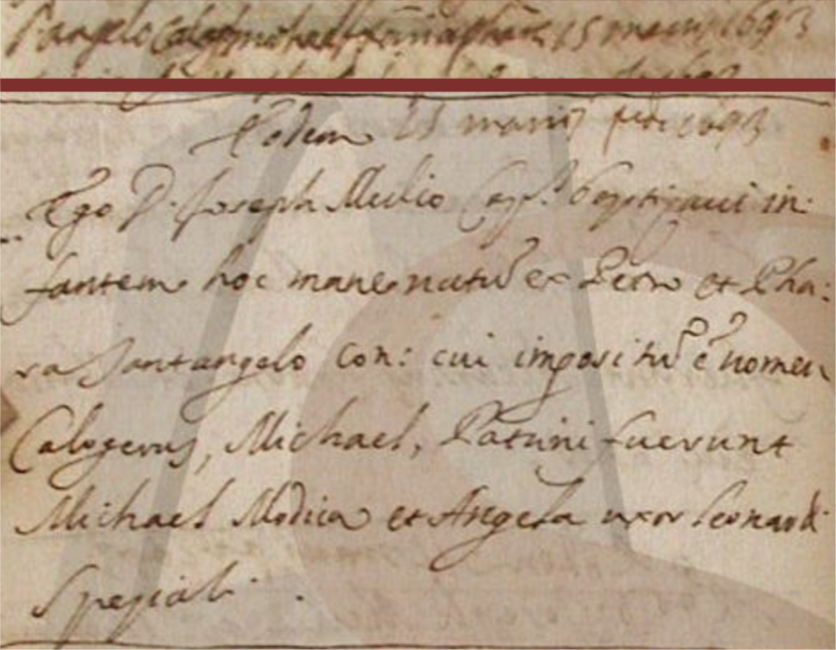 Santangelo Calog. Michael 15 maij 1693
Eodem 15 maij 1693
Ego D. Joseph Mulio Cap. baptizaui in:
fantem hoc mane natũ ex Petro et Pha:
ra Santangelo con: cui impositũ ẽ nomen
Calogerus, Michael, Patrini fuerunt
Michael Modica et Angela uxor leonardi
Speziali.